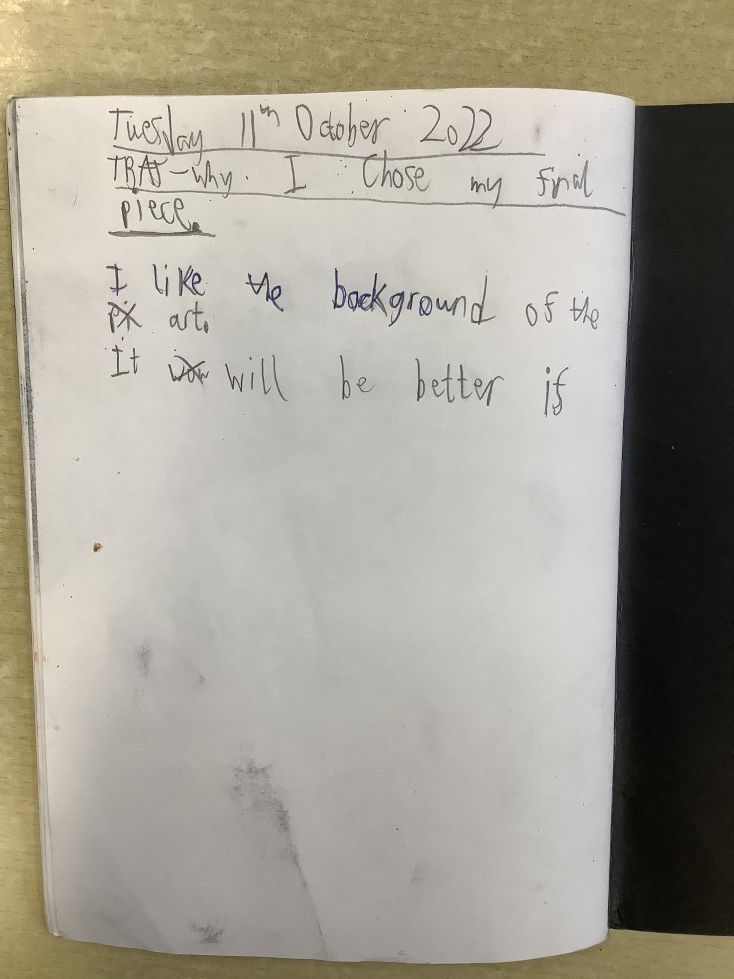 Tuesday 11th October 2022
TBAT - Why I Chose my final
piece.
I like the background of the
art.
It will be better if